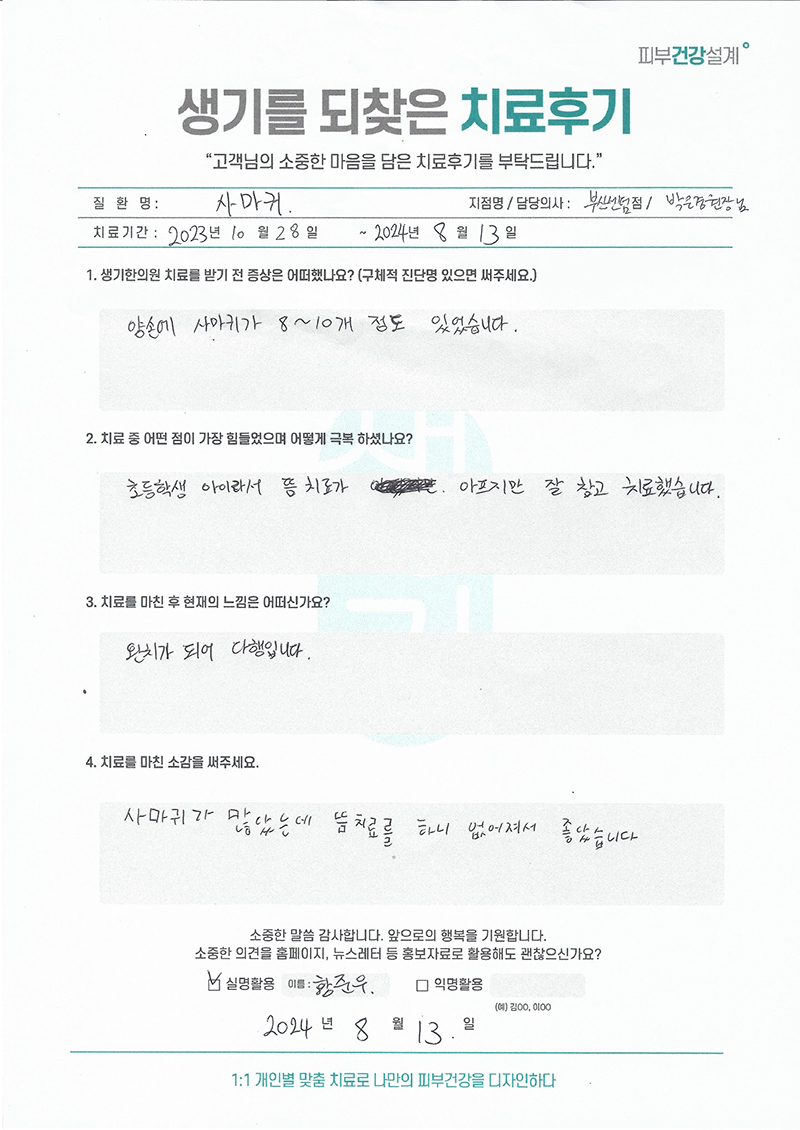 피부건강설계
생기를 되찾은 치료후기
“고객님의 소중한 마음을 담은 치료후기를 부탁드립니다.”
질 환 명 : 사마귀. 지점명 / 담당의사 : 부산센텀점 / 박은경원장님
치료기간 : 2023년 10 월 28 일 ~ 2024년 8 월 13 일
1. 생기한의원 치료를 받기 전 증상은 어떠했나요? (구체적 진단명 있으면 써주세요.)
양손에 사마귀가 8~10개 정도 있었습니다.
2. 치료 중 어떤 점이 가장 힘들었으며 어떻게 극복 하셨나요?
초등학생 아이라서 뜸 치료가 아프지만 잘 참고 치료했습니다.
3. 치료를 마친 후 현재의 느낌은 어떠신가요?
완치가 되어 다행입니다.
4. 치료를 마친 소감을 써주세요.
사마귀가 많았는데 뜸치료를 하니 없어져서 좋았습니다
소중한 말씀 감사합니다. 앞으로의 행복을 기원합니다.
소중한 의견을 홈페이지, 뉴스레터 등 홍보자료로 활용해도 괜찮으신가요?
실명활용 이름 : 황준우. 익명활용
(예) 김OO, 이OO
2024 년 8 월 13. 일
1:1 개인별 맞춤 치료로 나만의 피부건강을 디자인하다